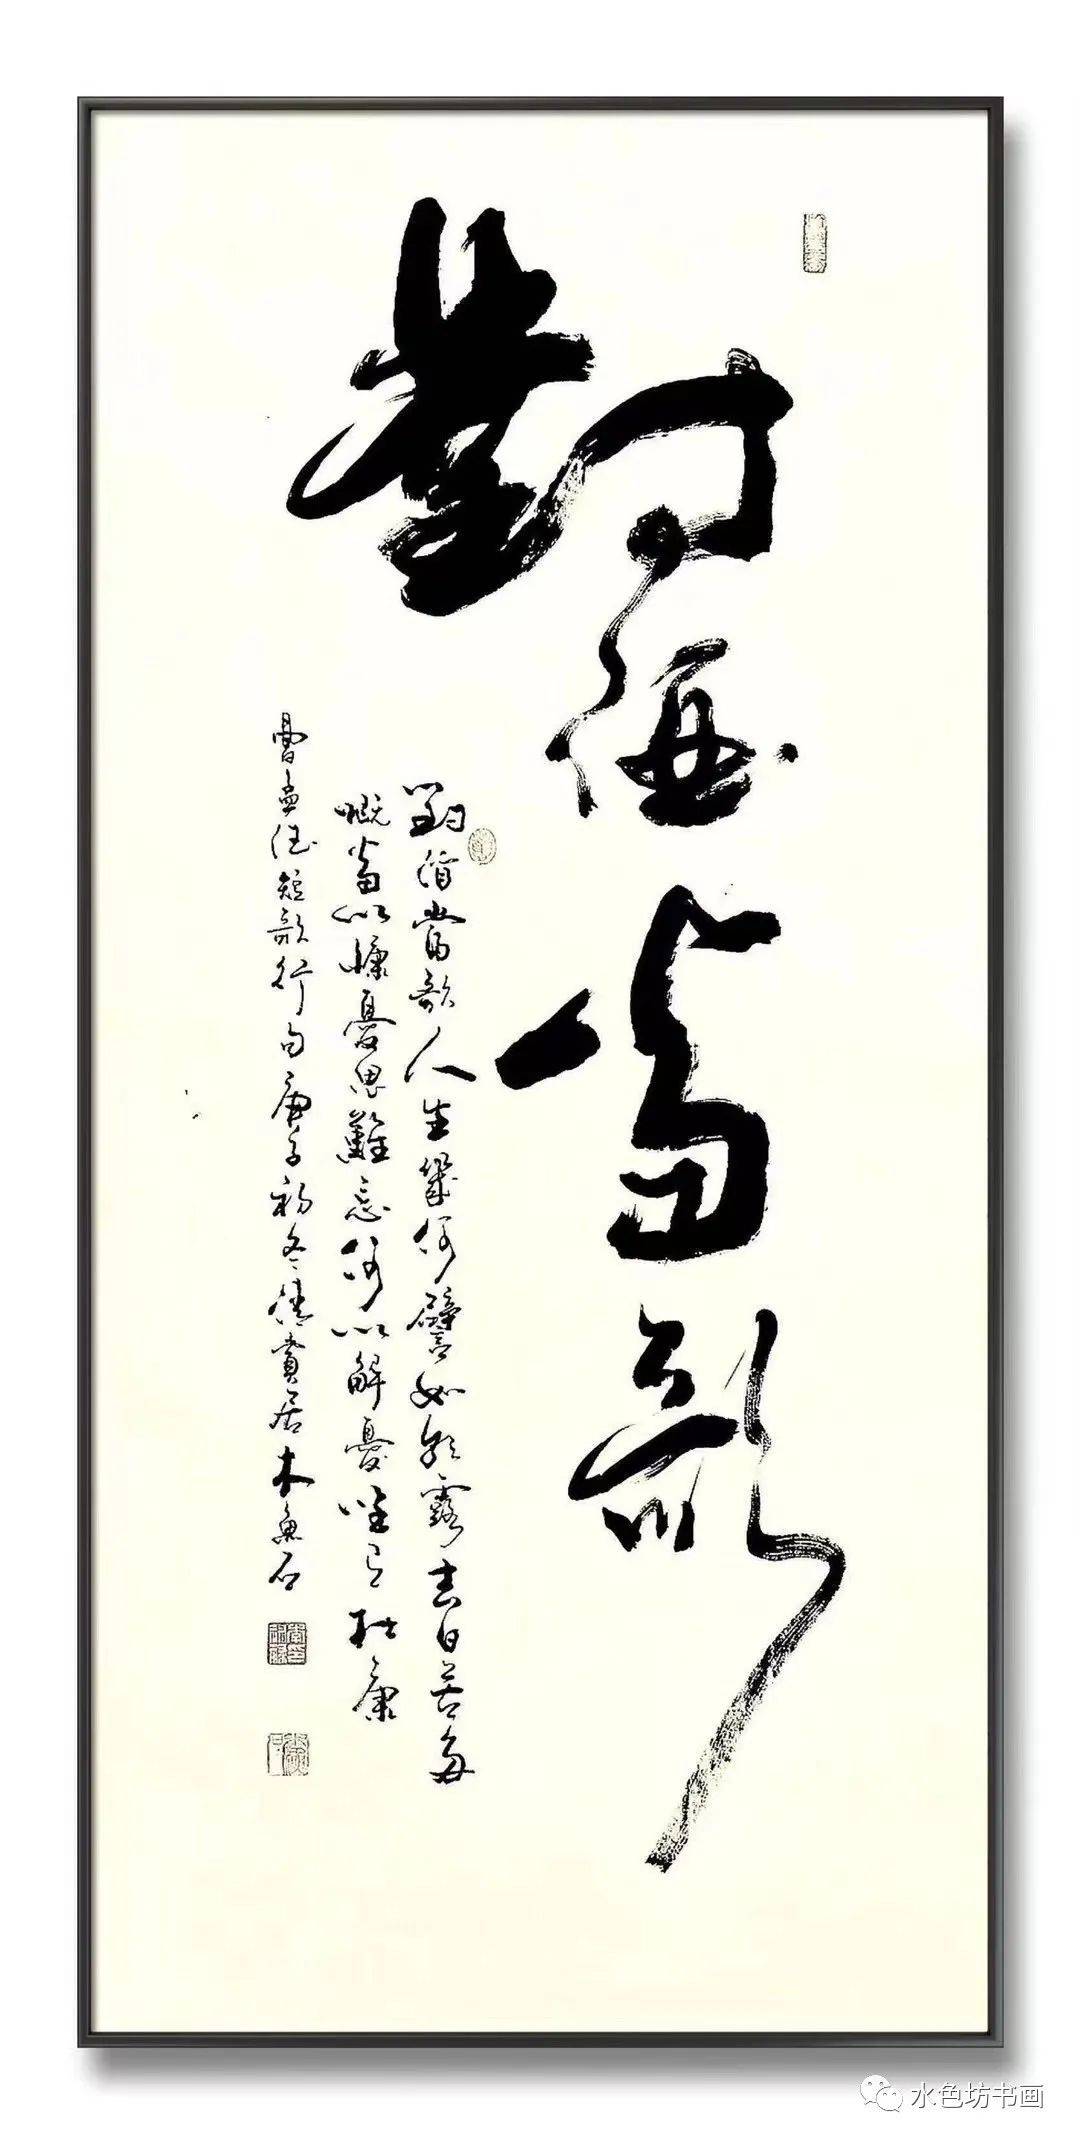 對酒當歌
對酒當歌人生幾何譬如朝露去日苦多
慨當以慷憂思難忘何以解憂唯有杜康
曹孟德短歌行句庚子初冬清賞居木魚石
水色坊书画